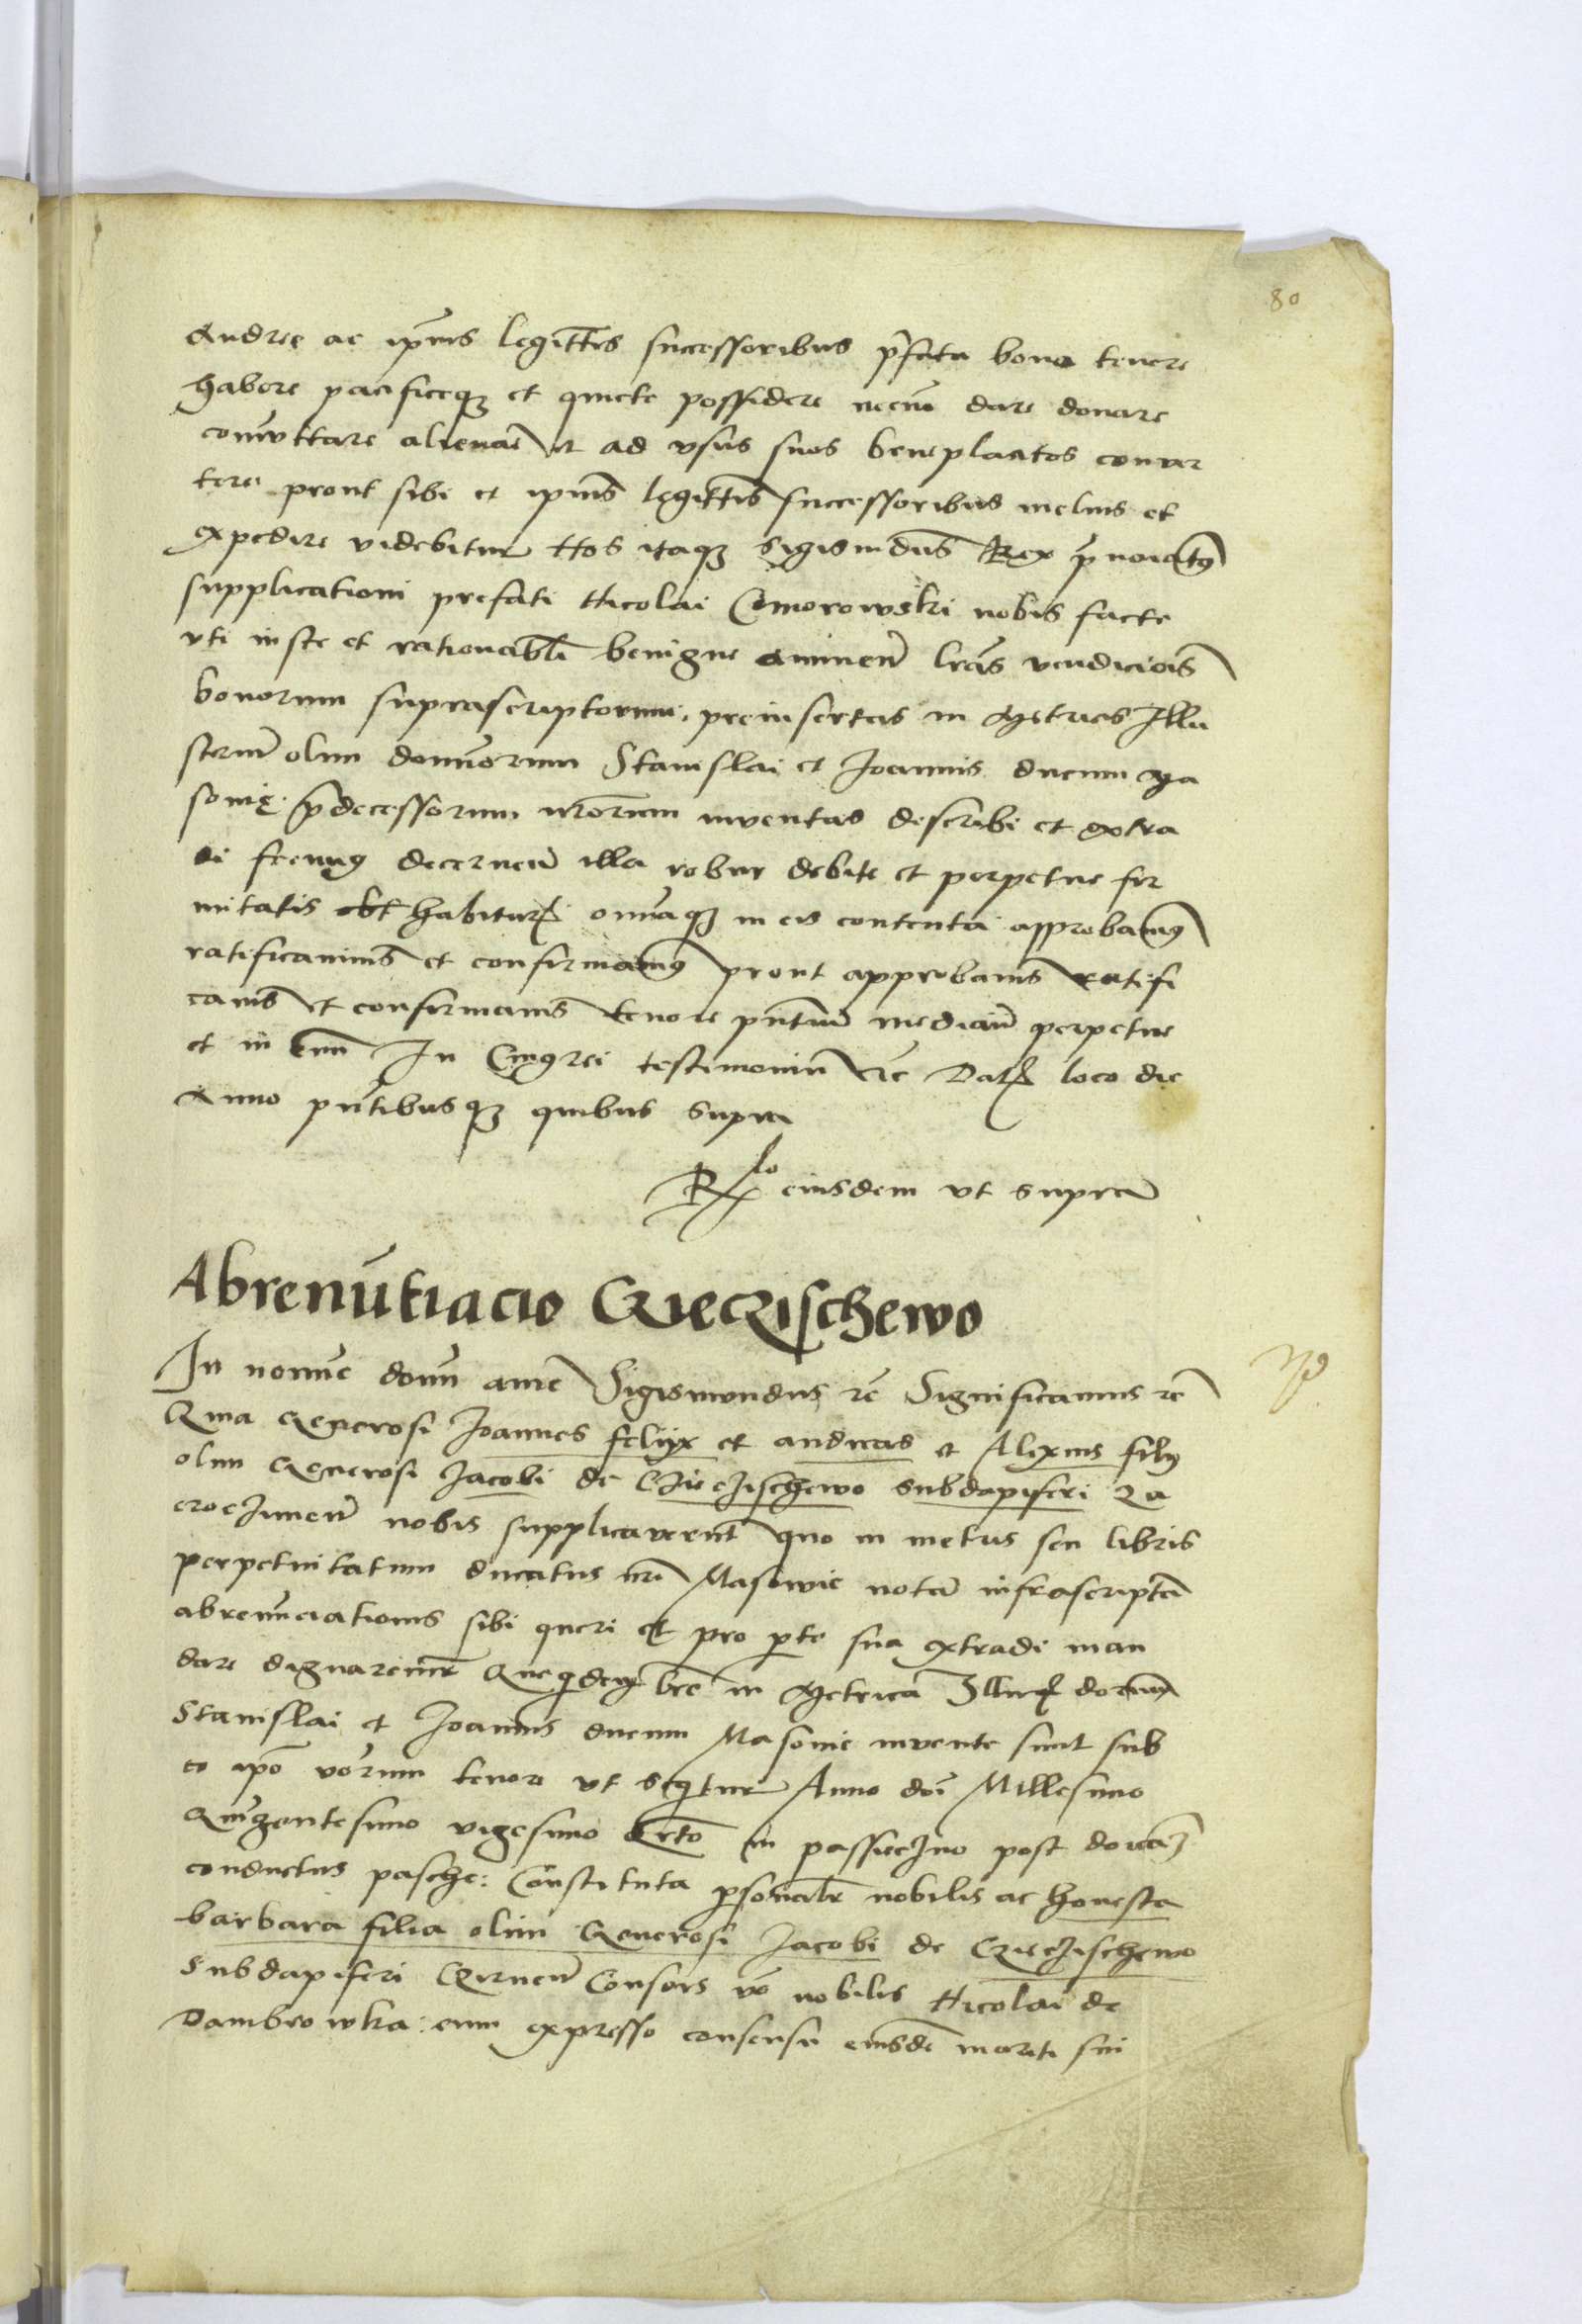 80
Andree ac ip̄ius legittīs successoribus p̄fata bona tenere
habere pacificeqȝ et quiete possidere necnō dare donare
comuttare alienare et ad vsus suos beneplacitos conver
tere prout sibi et ipius legittīs successoribus melius et
expedire videbitur Nos itaqȝ Sigismūdus Rex p̄noiatus
supplicationi prefati Nicolai Comorowski nobis facte
vti iuste et rationabli benigne lr̄as vendiciōis
bonorum suprascriptorum preinsertas in Metricis Illu
strium olim domīorum Stanislai et Joannis ducum Ma
souię p̄decessorum nr̄orum inventas describi et extra
di fecimus decernen illa robur debite et perpetue fir
mitatis habitur omniaqȝ in eis contenta approbamus
ratificamus et confirmamus prout approbamus ratifi
camus et confirmamus tenore pn̄tium median perpetue
et in euū In Cuius rei testimoniū etc Dat loco die
Anno pn̄tibusqȝ quibus supra
Rlo eiusdem vt supra
Abrenūtiacio Czieczischewo
In nomīe domī amē Sigismundus rē Significamus rē
Quia Generosi Joannes feliix et andreas et Alexius filii
olim Generosi Jacobi de Czieczischewo subdapiferi Za
croczimen nobis supplicaverūt quo in metricis seu libris
perpetuitatum ducatus nr̄i Masowie notā infrascriptā
abrenūciationis sibi queri et pro p̄te sua extradi man
dare dignaremur Que qdem in Metrica Illur
Stanislai et Joannis ducum Masouie invente sunt sub
eo ip̄o v̄orum tenore vt seqtur Anno dnī Millesimo
Quīgentesimo vigesimo Qrto in passieczno post domcā
conductus pasche: Constituta p̄sonalr nobilis ac honesta
barbara filia olim Generosi Jacobi de Czieczischewo
Subdapiferi Czirnen Consors nobilis Nicolai de
Dambrowka cum expresso consensu eiusdē mariti sui